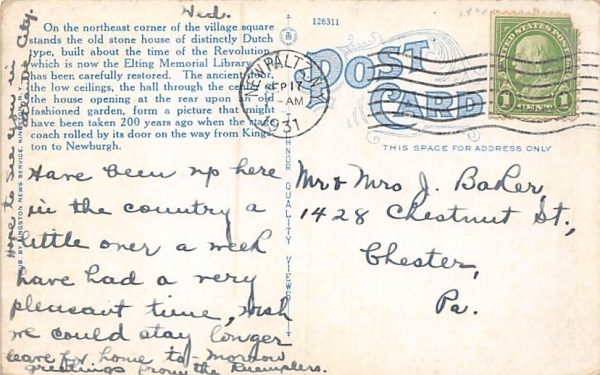 Wed.
On the northeast corner of the village square
stands the old stone house of distinctly Dutch
type, built about the time of the Revolution,
which is now the Elting Memorial Library. It
has been carefully restored. The ancient door,
the low ceilings, the hall through the center,
the house opening at the rear upon an old
fashioned garden, form a picture that might
have been taken 200 years ago when the stage
coach rolled by its door on the way from Kings-
ton to Newburgh.
Have been up here
in the country a
little over a week
have had a very
pleasant time, wish
we could stay longer
leave for home to-morrow
greetings from the
Hope to see you in
City.
PUB. BY KINGSTON NEWS SERVICE, KINGSTON
QUALITY VIEWS
126311
POST
CARD
NEW PALTZ N.Y.
SEP 17
AM
1931
UNITED STATES POSTAGE
1 1
THIS SPACE FOR ADDRESS ONLY
Mr & Mrs J. Baker
1428 Chestnut St.,
Chester,
Pa.